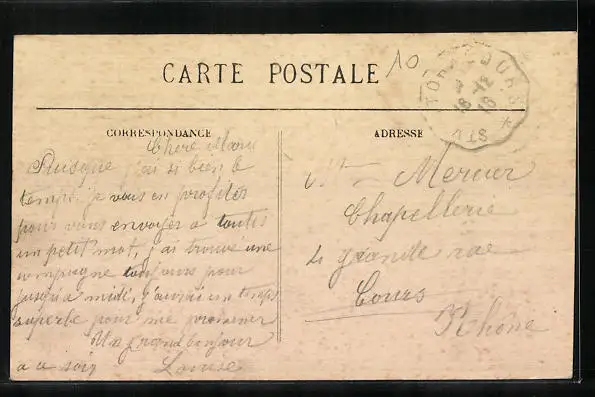 CARTE POSTALE
10
CORRESPONDANCE
ADRESSE
Chère
Puisque j'ai si bien le
temps je vous en profiter
pour vous envoyer a toutes
un petit mot, j'ai trouvé une
compagne toujours pour
jusqu'a midi, j'aurai un temps
superbe pour me promener
Un grand bonjour
a ce soir Louise
Mercier
Chapellerie
grande rue
Cours
Rhône